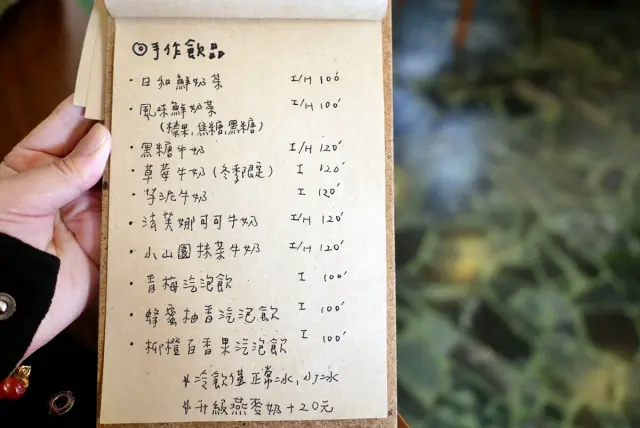 ◎手作飲品
・日和鮮奶茶 I/H 100'
・風味鮮奶茶 I/H 100'
(榛果,焦糖,黑糖)
・黑糖牛奶 I/H 120'
・草莓牛奶(冬季限定) I 120'
・芋泥牛奶 I 120'
・法芙娜可可牛奶 I/H 120'
・小山園抹茶牛奶 I/H 120'
・青梅汽泡飲 I 100'
・蜂蜜柚香汽泡飲 I 100'
・柳橙百香果汽泡飲 I 100'
*冷飲僅正常冰,少冰
*升級燕麥奶+20元